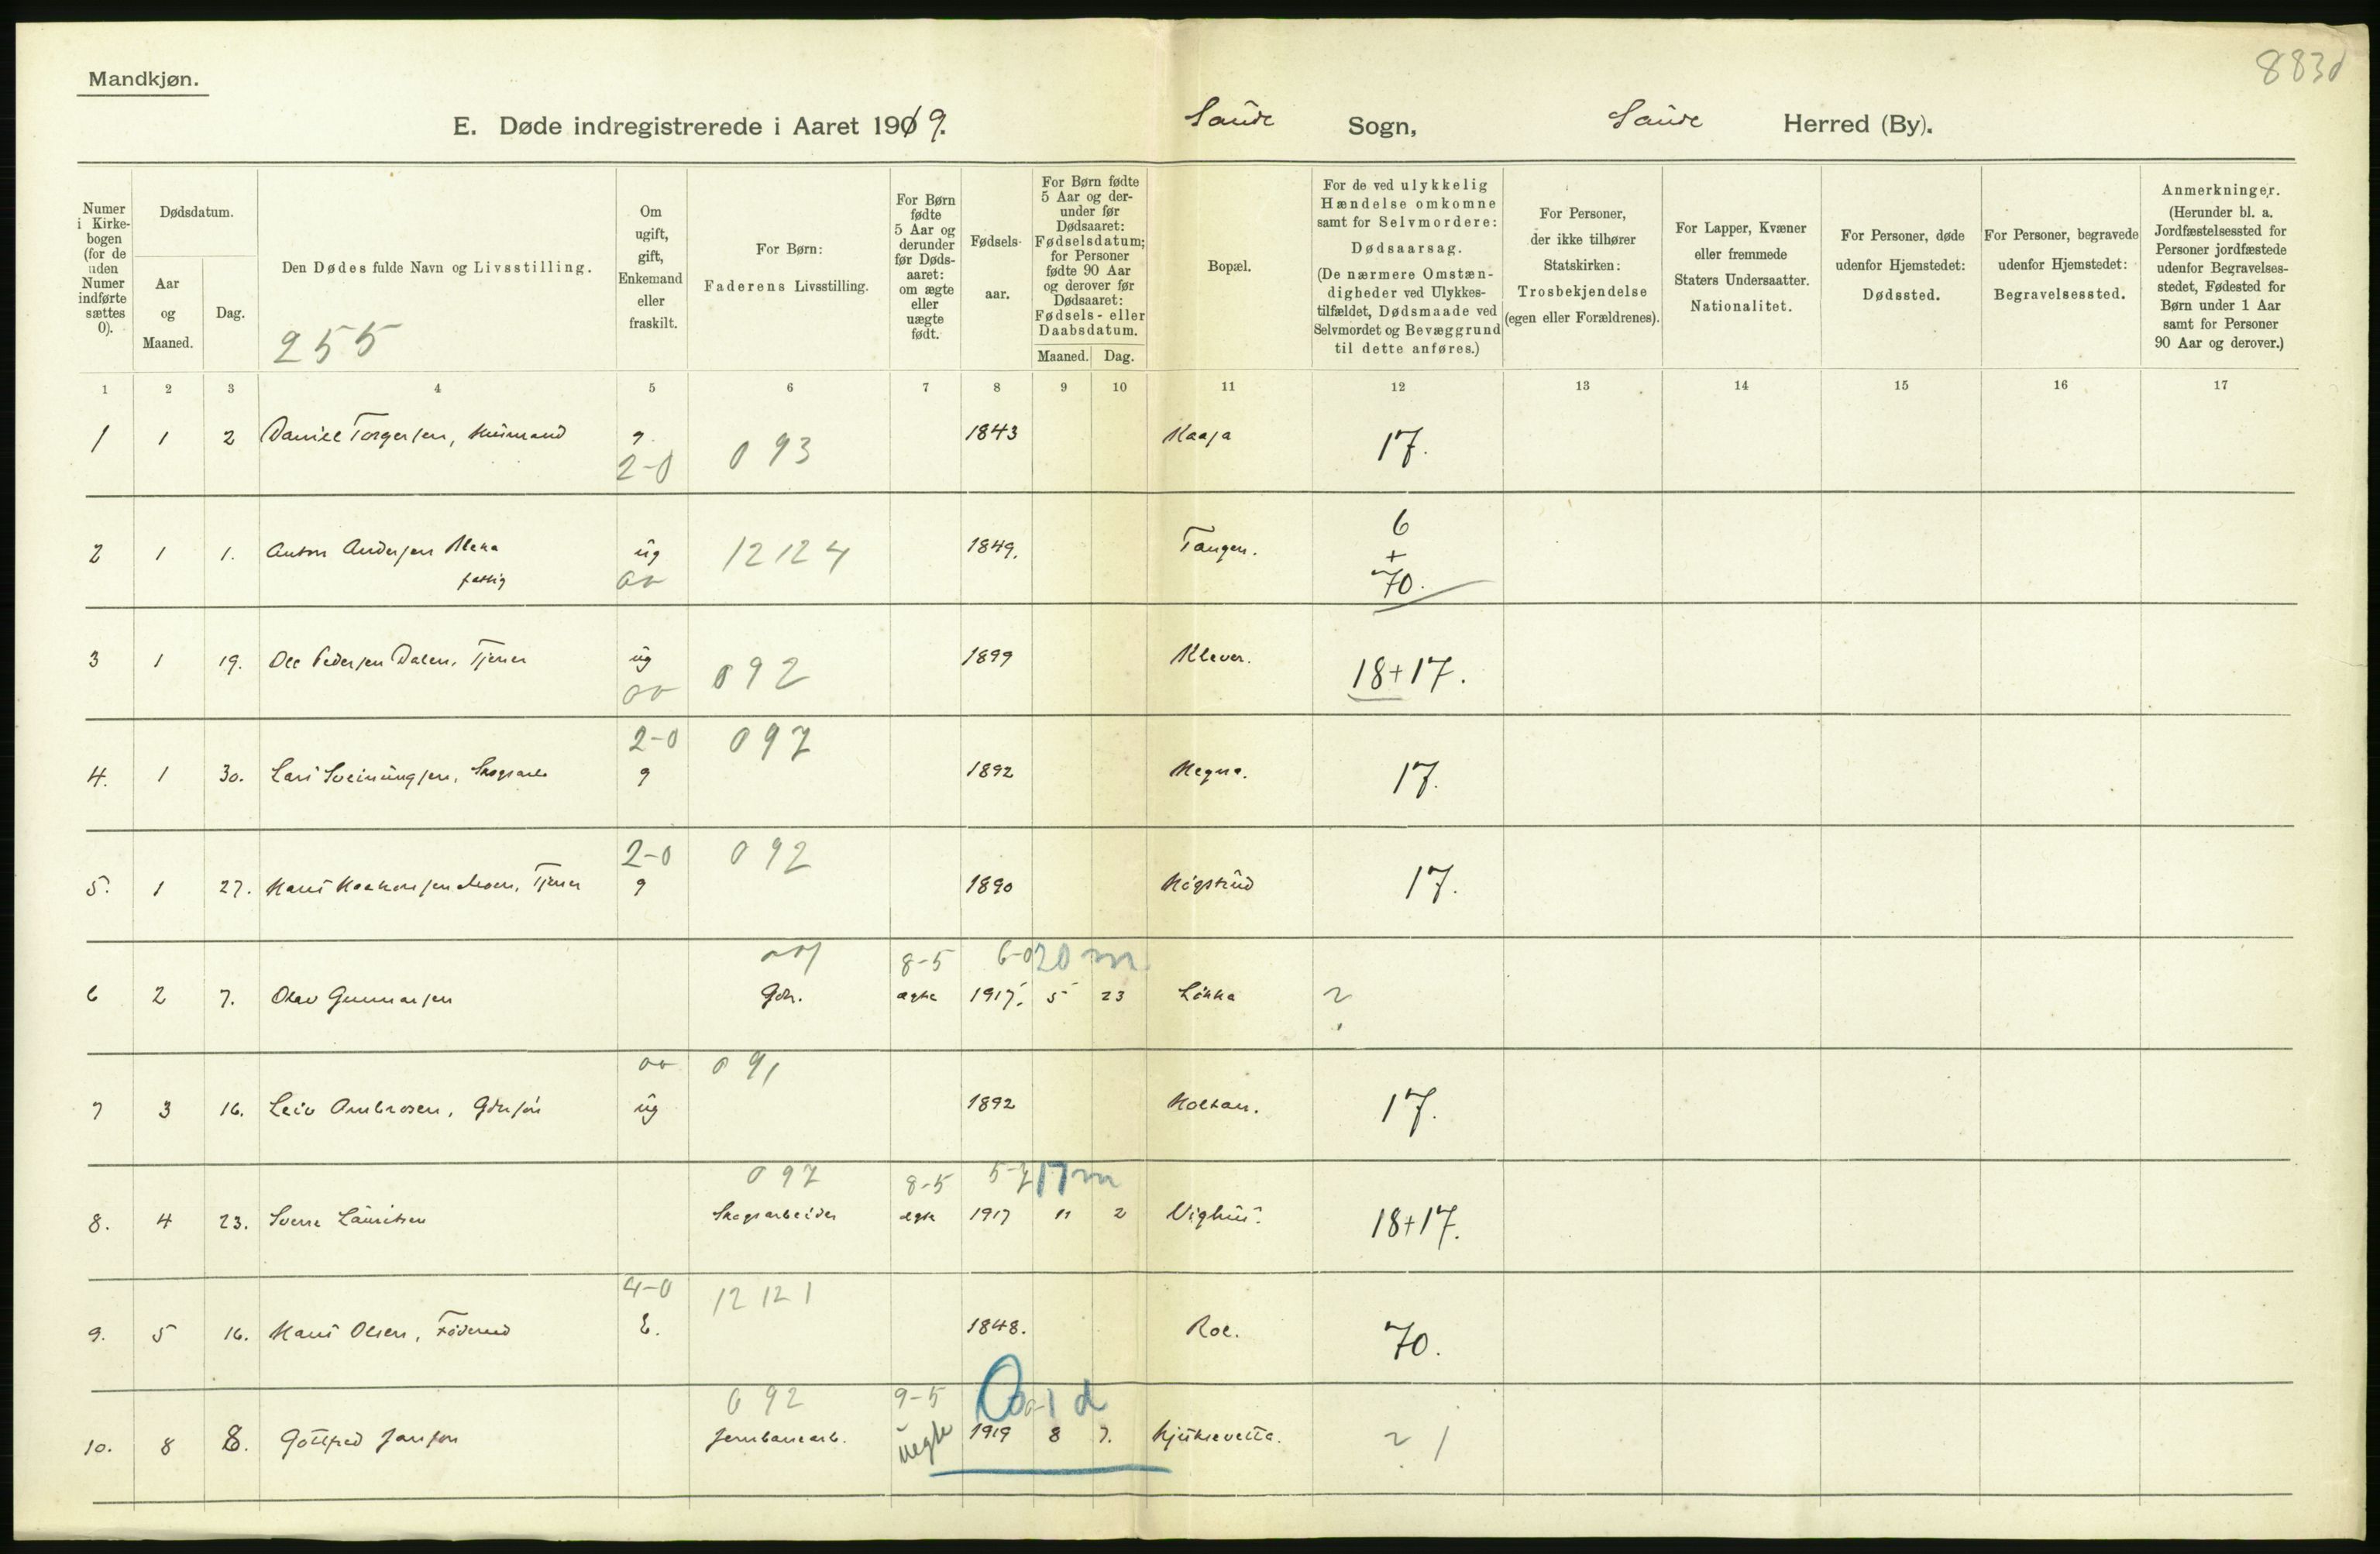 883d
Mandkjøn.
E. Døde indregistrerede i Aaret 1909. Saude Sogn, Saude Herred (By).
Numer i Kirkebogen (for de uden Numer indførte sættes 0).
Dødsdatum.
Aar og Maaned.
Dag.
Den Dødes fulde Navn og Livsstilling.
255
Om ugift, gift, Enkemand eller fraskilt.
For Børn: Faderens Livsstilling.
For Børn fødte 5 Aar og derunder før Dødsaaret: om ægte eller uægte født.
Fødselsaar.
For Børn fødte 5 Aar og derunder før Dødsaaret: Fødselsdatum; for Personer fødte 90 Aar og derover før Dødsaaret: Fødsels- eller Daabsdatum.
Maaned. Dag.
Bopæl.
For de ved ulykkelig Hændelse omkomne samt for Selvmordere: Dødsaarsag. (De nærmere Omstændigheder ved Ulykkestilfældet, Dødsmaade ved Selvmordet og Bevæggrund til dette anføres.)
For Personer, der ikke tilhører Statskirken: Trosbekjendelse (egen eller Forældrenes).
For Lapper, Kvæner eller fremmede Staters Undersaatter. Nationalitet.
For Personer, døde udenfor Hjemstedet: Dødssted.
For Personer, begravede udenfor Hjemstedet: Begravelsessted.
Anmerkninger. (Herunder bl. a. Jordfæstelsessted for Personer jordfæstede udenfor Begravelsesstedet, Fødested for Børn under 1 Aar samt for Personer 90 Aar og derover.)
1 2 3 4 5 6 7 8 9 10 11 12 13 14 15 16 17
1 1 2 Daniel Torgersen, Husmand g 1843 Kaasa 17.
2-0 093
2 1 1. Anton Andersen ug 12124 1849. Tangen. 6 + 70.
fattig
3 1 19. Ole Pedersen Dalen, Tjener ug 092 1899 Klever. 18+17.
2-0 097
4. 1 30. Lars Sveinungsen, Skogsarb g 1892 Hegna. 17.
2-0 092
5. 1 27. Hans Haakonsen Moen, Tjener g 1890 Høgstud 17.
8-5 6-0 20 m
6 2 7. Olav Gunnarsen Gdr. ægte 1917. 5 23 Løkka ?
091
7 3 16. Leiv Ambrosen, Gdrsøn ug 1892 Holtan. 17.
097 8-5 5-7 17 m
8. 4 23. Sverre Lauritsen Skogsarbeider ægte 1917 11 2 Vighus. 18+17.
4-0 12121
9. 5 16. Hans Olsen, Føderaad E. 1848. Roe. 70.
092 9-5 1 d
10. 8 8. Gottfred Janson Jernbanearb. uegte 1919 8 7. ? 1